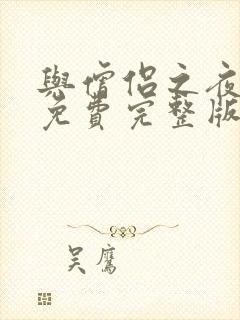 與僧侶之夜
免費完整版
吴鷹